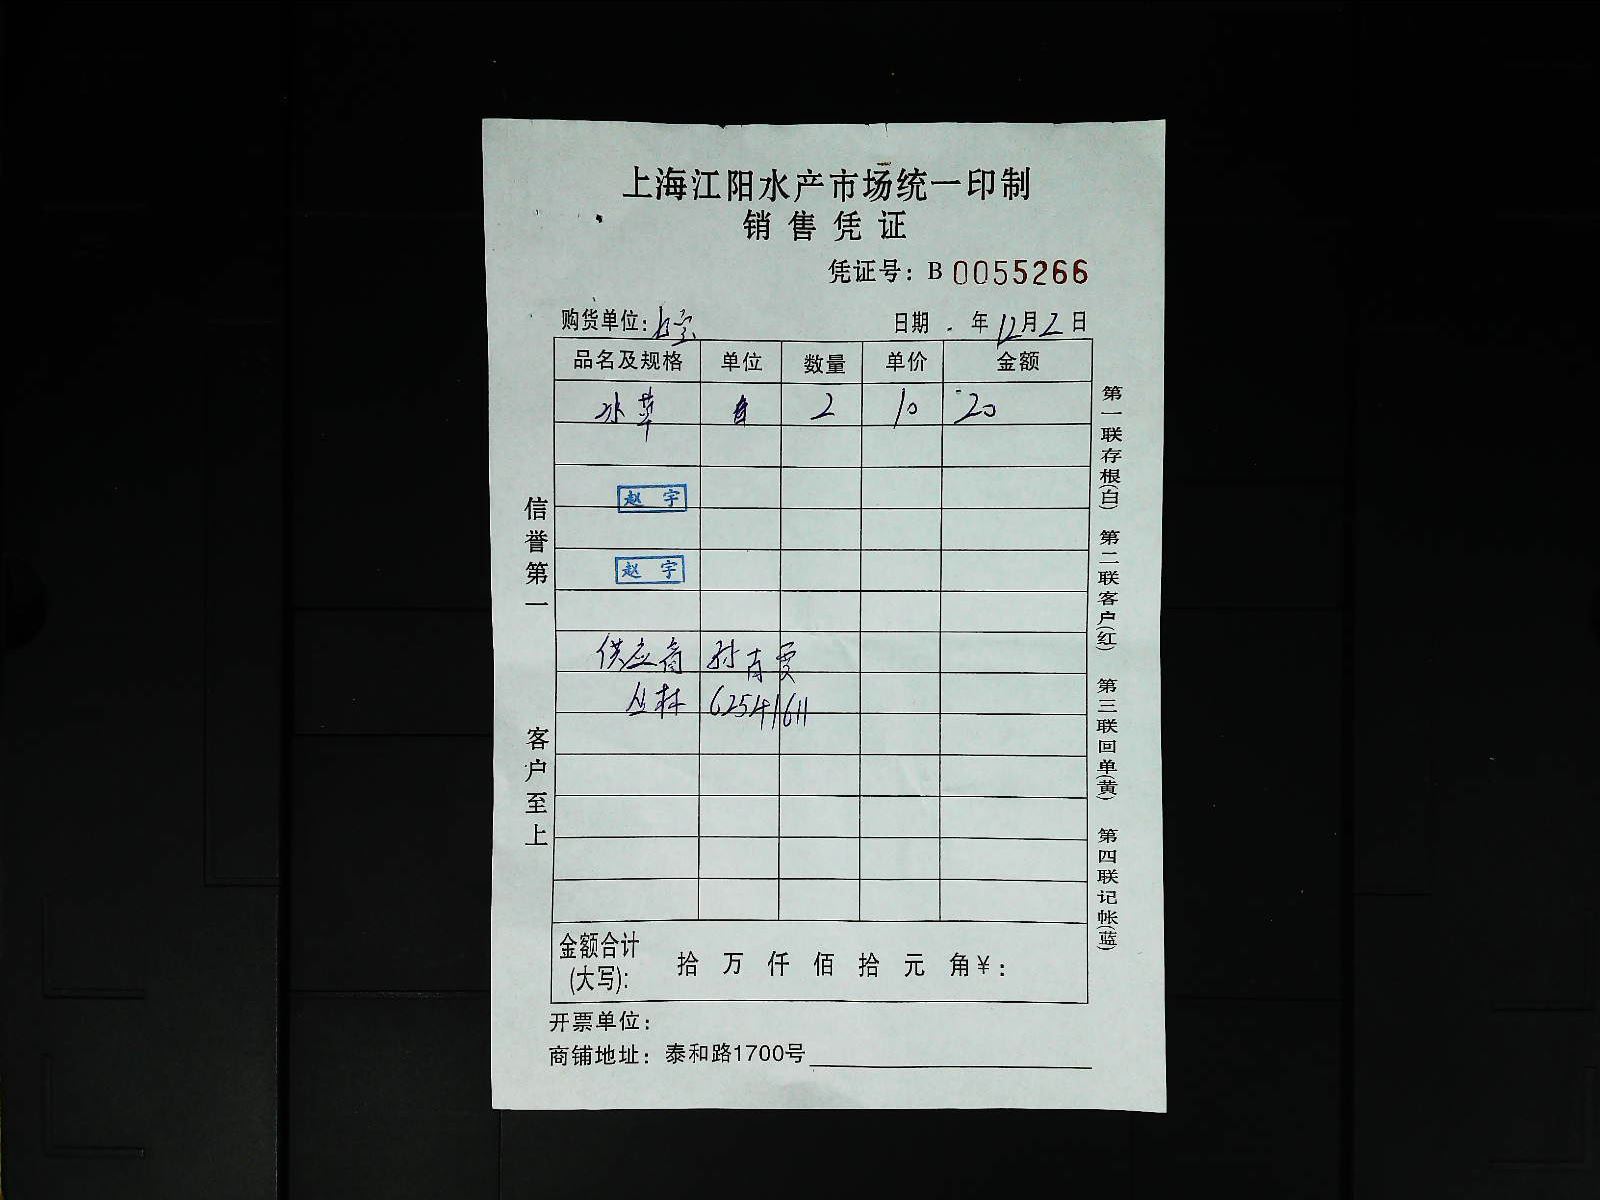 上海江阳水产市场统一印制
销售凭证
凭证号：B 0055266
购货单位：
日期 年 12月2日
品名及规格 单位 数量 单价 金额
2 10 20
赵 宇
赵 宇
供应商 孙
丛林 62541611
金额合计
(大写)： 拾 万 仟 佰 拾 元 角 ¥：
开票单位：
商铺地址：泰和路1700号
信誉第一 客户至上
第一联存根(白) 第二联客户(红) 第三联回单(黄) 第四联记帐(蓝)